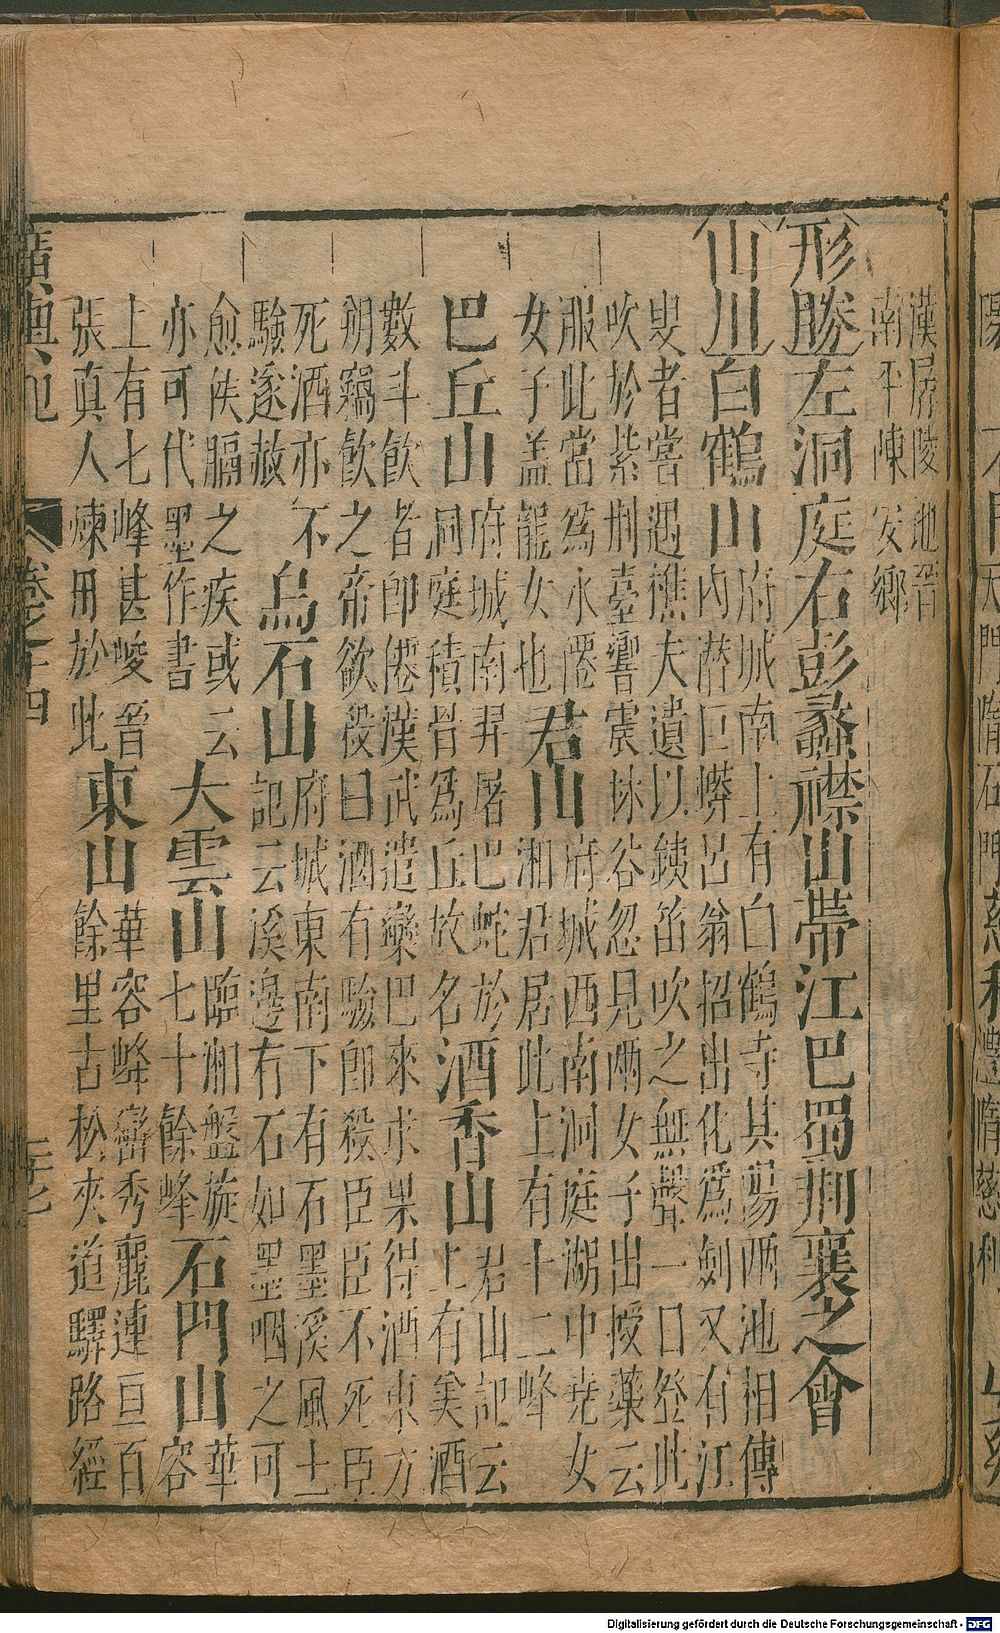 漢孱陵地晉
南平陳安鄉
形勝左洞庭右彭蠡襟山帶江巴蜀荆襄之會
山川白鶴山府城南上有白鶴寺其陽兩池相傳
内潛巨蟒呂翁招出化爲劍又有江
叟者嘗遇樵夫遺以鐵笛吹之無聲一日登此
吹於紫荆臺響震林谷忽見兩女子出授藥云
服此當爲水僊
女子蓋龍女也
君山府城西南洞庭湖中堯女
湘君居此上有十二峰
巴丘山府城南羿屠巴蛇於
洞庭積骨爲丘故名
酒香山君山記云
上有美酒
數斗飲者即僊漢武遣欒巴來求果得酒東方
朔竊飲之帝欲殺曰酒有驗即殺臣臣不死臣
死酒亦不
驗遂赦
烏石山府城東南下有石墨溪風土
記云溪邊有石如墨咽之可
愈佚膈之疾或云
亦可代墨作書
大雲山臨湘盤旋
七十餘峰
石門山華
容
上有七峰甚峻晉
張真人煉丹於此
東山華容峰巒秀麗連亘百
餘里古松夾道驛路經
廣輿記 卷之十四 二十七
Digitalisierung gefördert durch die Deutsche Forschungsgemeinschaft - DFG